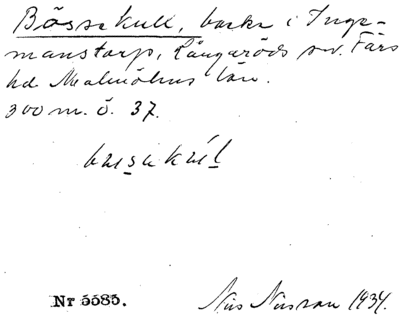 Bössekull, backe i Inge-
manstorp, Långaröds sn. Färs
hd Malmöhus län.
300 m. ö. 37.
Nr 5585.
Nils Nilsson 1934.